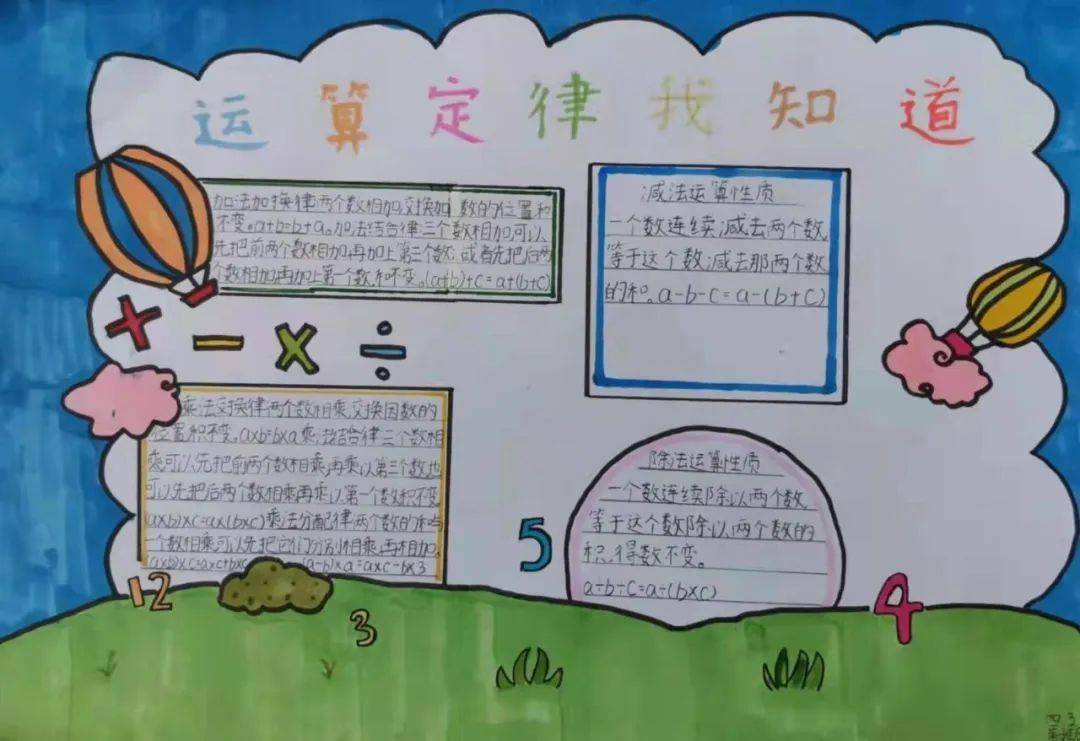 运算定律我知道
加法加换律:两个数相加,交换加 数的位置和
不变。a+b=b+a。加法结合律:三个数相加,可以
先把前两个数相加,再加上第三个数,或者先把后两
个数相加,再加上第一个数,和不变。(a+b)+c=a+(b+c)
减法运算性质
一个数连续减去两个数,
等于这个数减去那两个数
的和。a-b-c=a-(b+c)
+ - × ÷
乘法交换律:两个数相乘,交换因数的
位置积不变。a×b=b×a 乘法结合律三个数相
乘可以先把前两个数相乘,再乘以第三个数,也
可以先把后两个数相乘再乘以第一个数,积不变。
(a×b)×c=a×(b×c)乘法分配律:两个数的和与
一个数相乘,可以先把它们分别相乘,再相加。
(a×b)×c=a×c+b×c (a-b)×a=a×c-b×3
除法运算性质
一个数连续除以两个数
等于这个数除以两个数的
积,得数不变。
a÷b÷c=a÷(b×c)
5
12
3
4
四 3